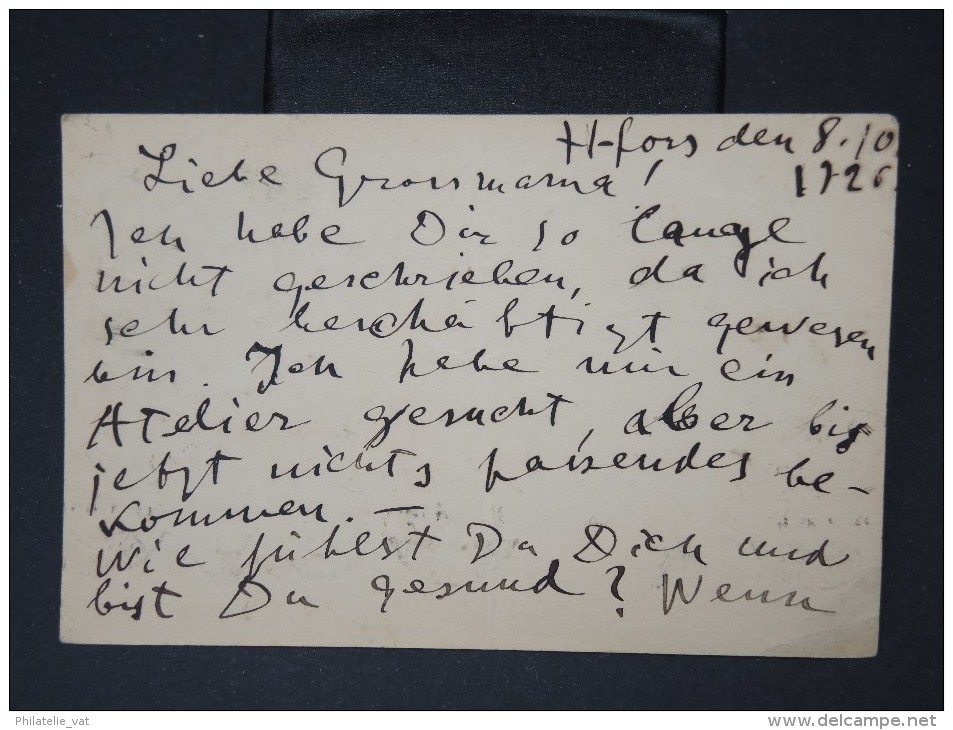 H-fors den 8.10.
1926.
Liebe Grossmama!
Ich habe Dir so lange
nicht geschrieben, da ich
sehr beschäftigt gewesen
bin. Ich habe mir ein
Atelier gesucht, aber bis
jetzt nichts passendes be-
kommen. —
Wie fühlst Du Dich und
bist Du gesund? Wenn
Philatelie_vat
www.delcampe.net